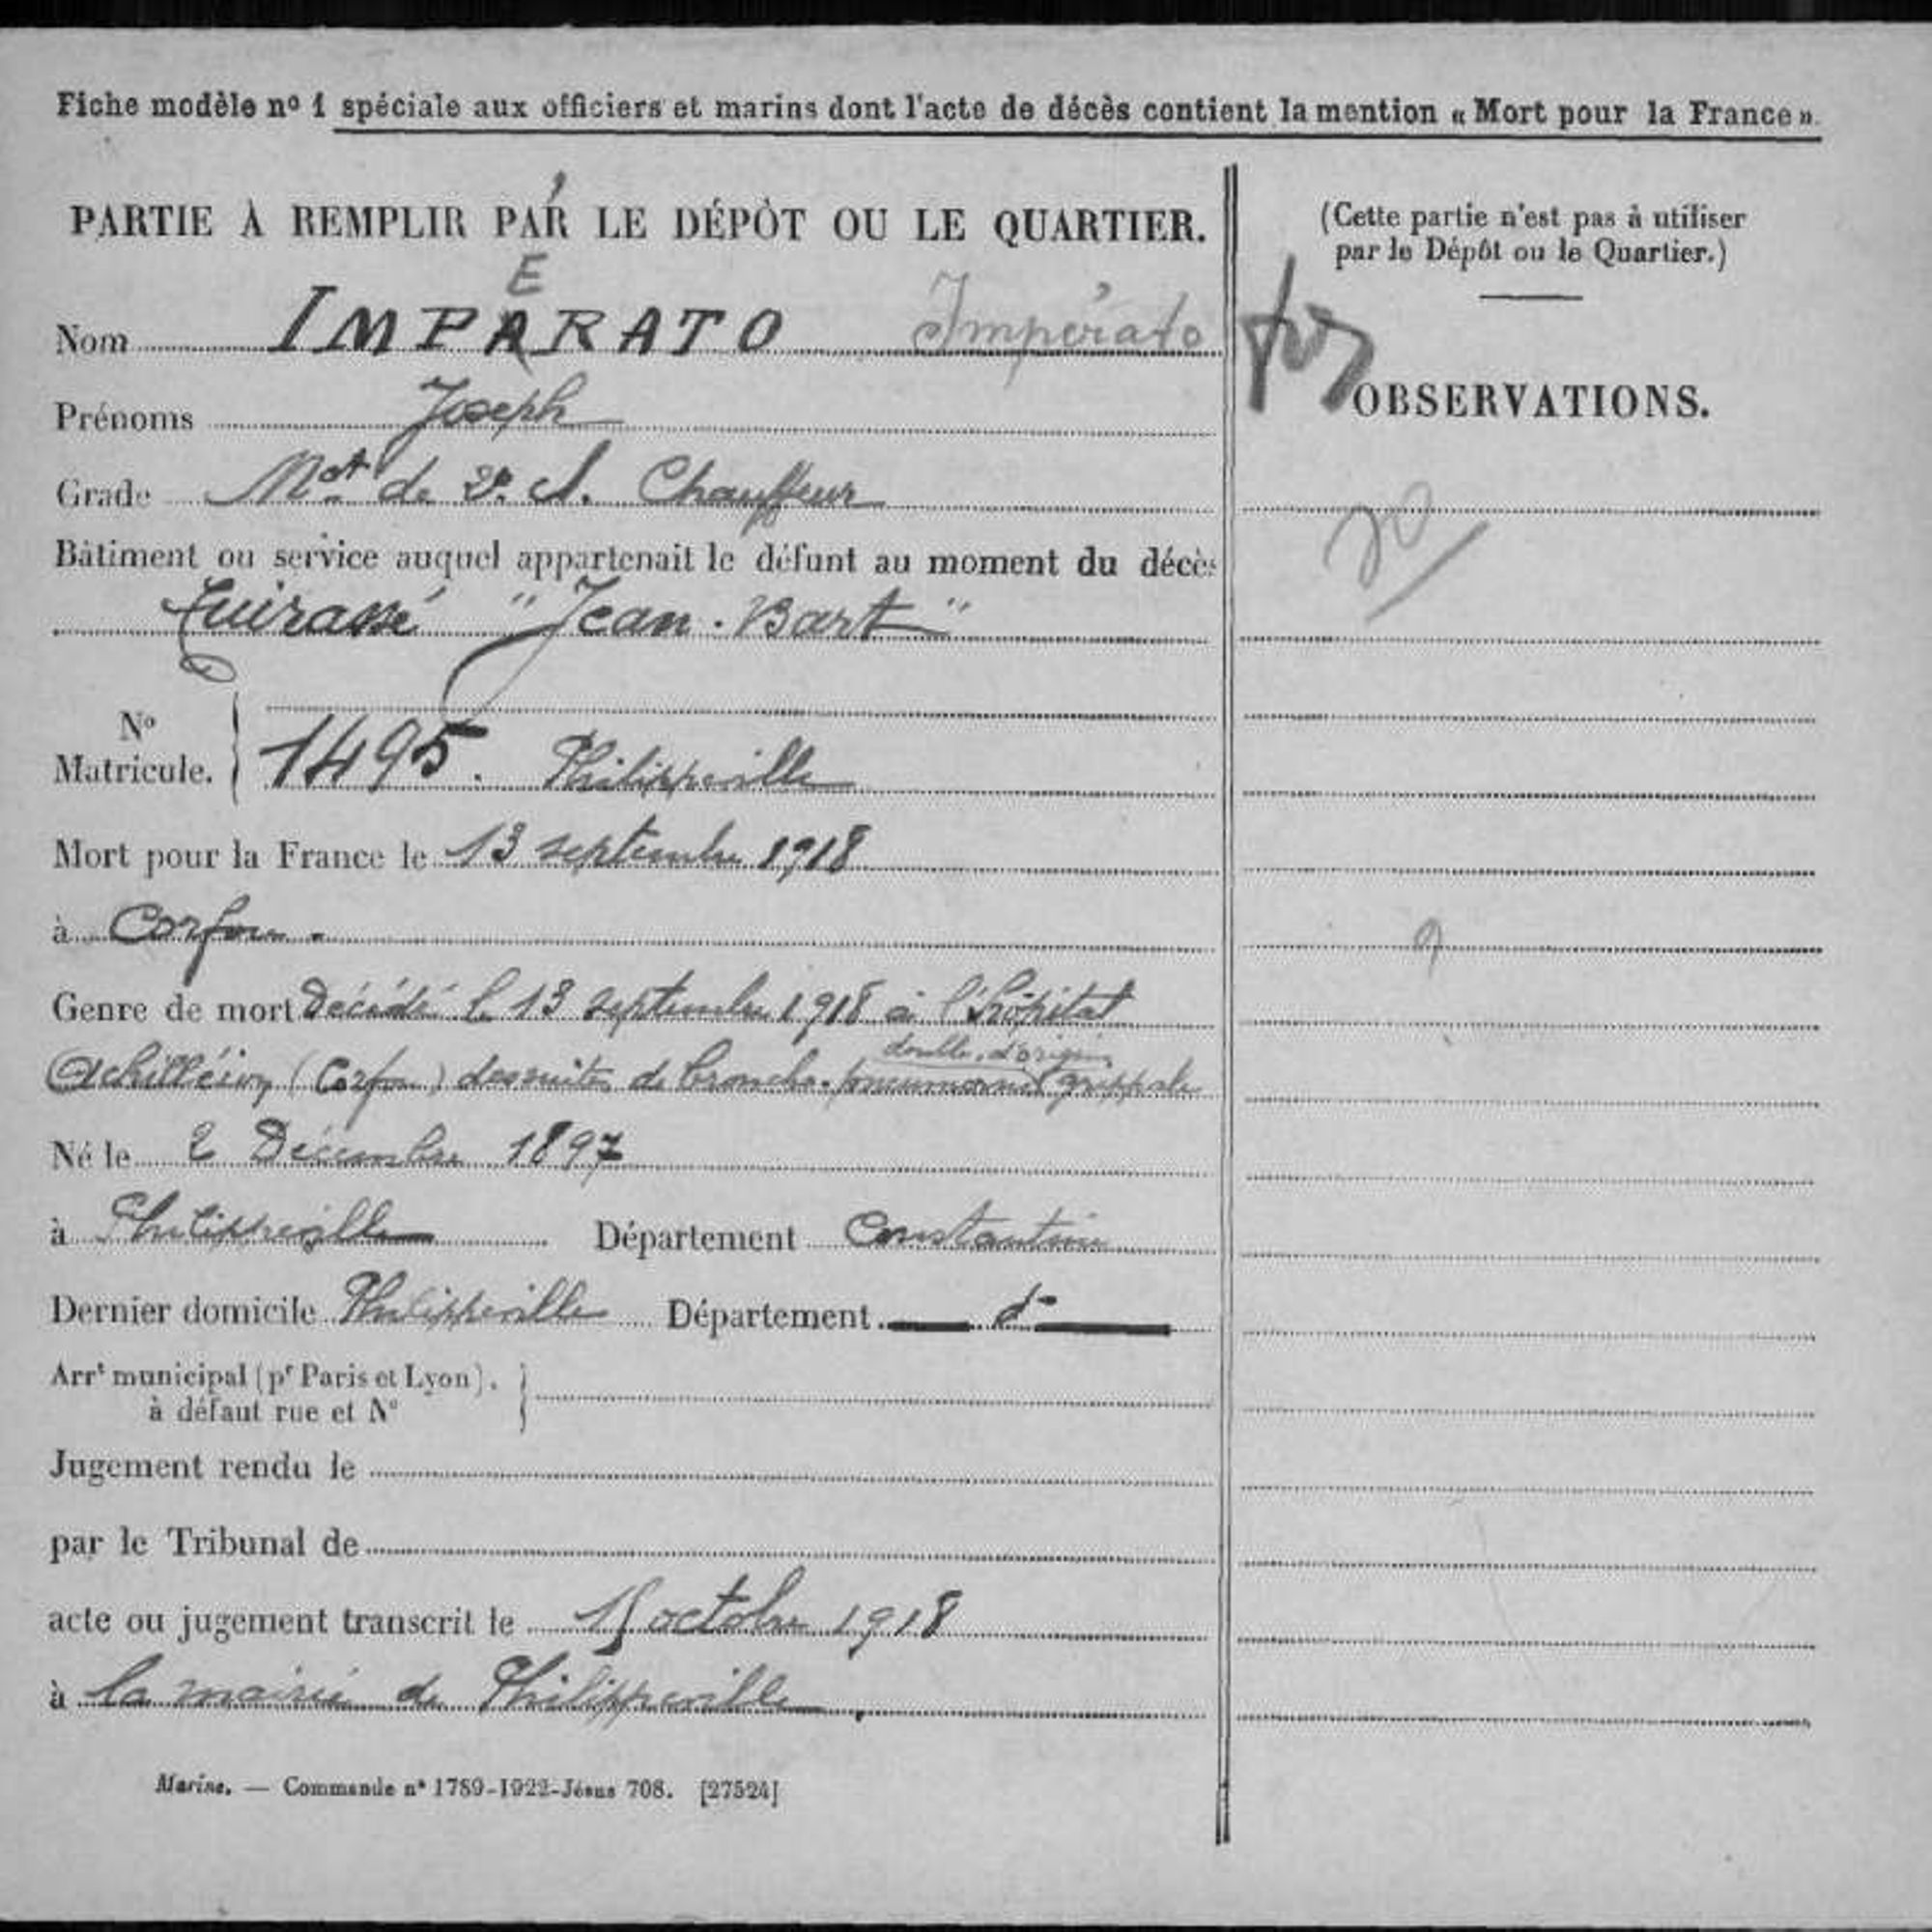 Fiche modèle nº 1 spéciale aux officiers et marins dont l'acte de décès contient la mention « Mort pour la France ».
PARTIE À REMPLIR PAR LE DÉPÔT OU LE QUARTIER.
É
Nom IMPARATO Impérato
Prénoms Joseph
Grade Mot de 2e cl. Chauffeur
Bâtiment ou service auquel appartenait le défunt au moment du décès
Cuirassé "Jean-Bart"
Nº
Matricule. 1495. Philippeville
Mort pour la France le 13 septembre 1918
à Corfou.
Genre de mort Décédé le 13 septembre 1918 à l'hôpital
double, d'origine
Achilléion (Corfou) des suites de broncho-pneumonie grippale
Né le 2 Décembre 1897
à Philippeville Département Constantine
Dernier domicile Philippeville Département d°
Arrt municipal (pr Paris et Lyon).
à défaut rue et N°
Jugement rendu le
par le Tribunal de
acte ou jugement transcrit le 15 octobre 1918
à la mairie de Philippeville.
Marine. — Commande nº 1789-1922-Jésus 708. [27524]
(Cette partie n'est pas à utiliser
par le Dépôt ou le Quartier.)
OBSERVATIONS.